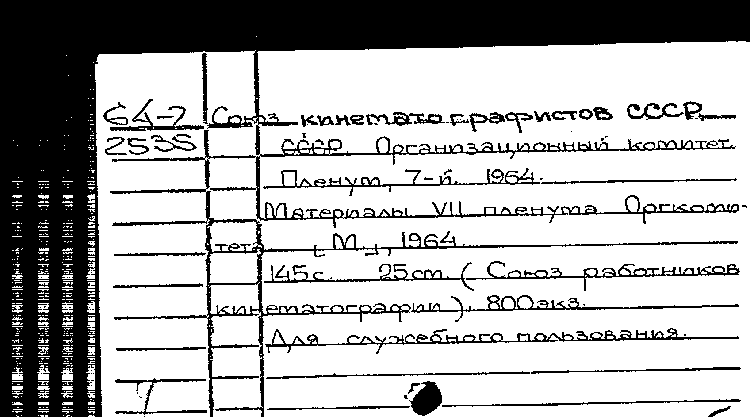 64-7 Союз кинематографистов СССР.
2535 СССР. Организационный комитет.
Пленум, 7-й. 1964.
Материалы VII пленума Оргкоми-
тета [М.], 1964.
145с. 25см. (Союз работников
кинематографии). 800экз.
Для служебного пользования.